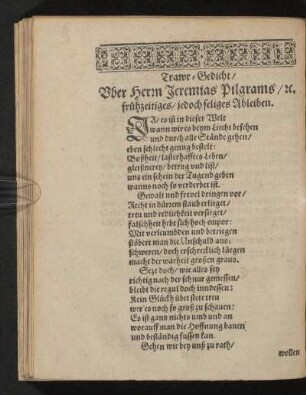 Trawr-Gedicht/
Vber Herrn Jeremias Pilgrams/ ꝛc.
frühzeitiges/ jedoch seliges Ableiben.
JA/ es ist in dieser Welt
wann wir es beym Liecht besehen
und durch alle Stände gehen/
eben schlecht genug bestelt:
Boßheit/ lasterhafftes Leben/
gleißnerey/ betrug und list/
uns ein schein der Tugend geben
warms noch so verderbet ist.
Gewalt und frevel dringen vor/
Recht in dürrem staub erlieget/
treu und redlichkeit versieget/
falschheit hebt sich hoch empor:
Mit verleumbden und betriegen
stöbert man die Unschuld aus:
schweren/ doch erschrecklich lüegen
macht der warheit großen graus.
Setz doch/ wir alles sey
richtig nach der schnur gemessen/
bleibt die regul doch inndessen:
Kein Glückh übet stete treu
wer es noch so groß zu schauen:
Es ist gantz nichts umb und an
worauff man die Hoffnung bauen/
und beständig fussen kan.
Gehen wir bey uns zu rath/
wollen